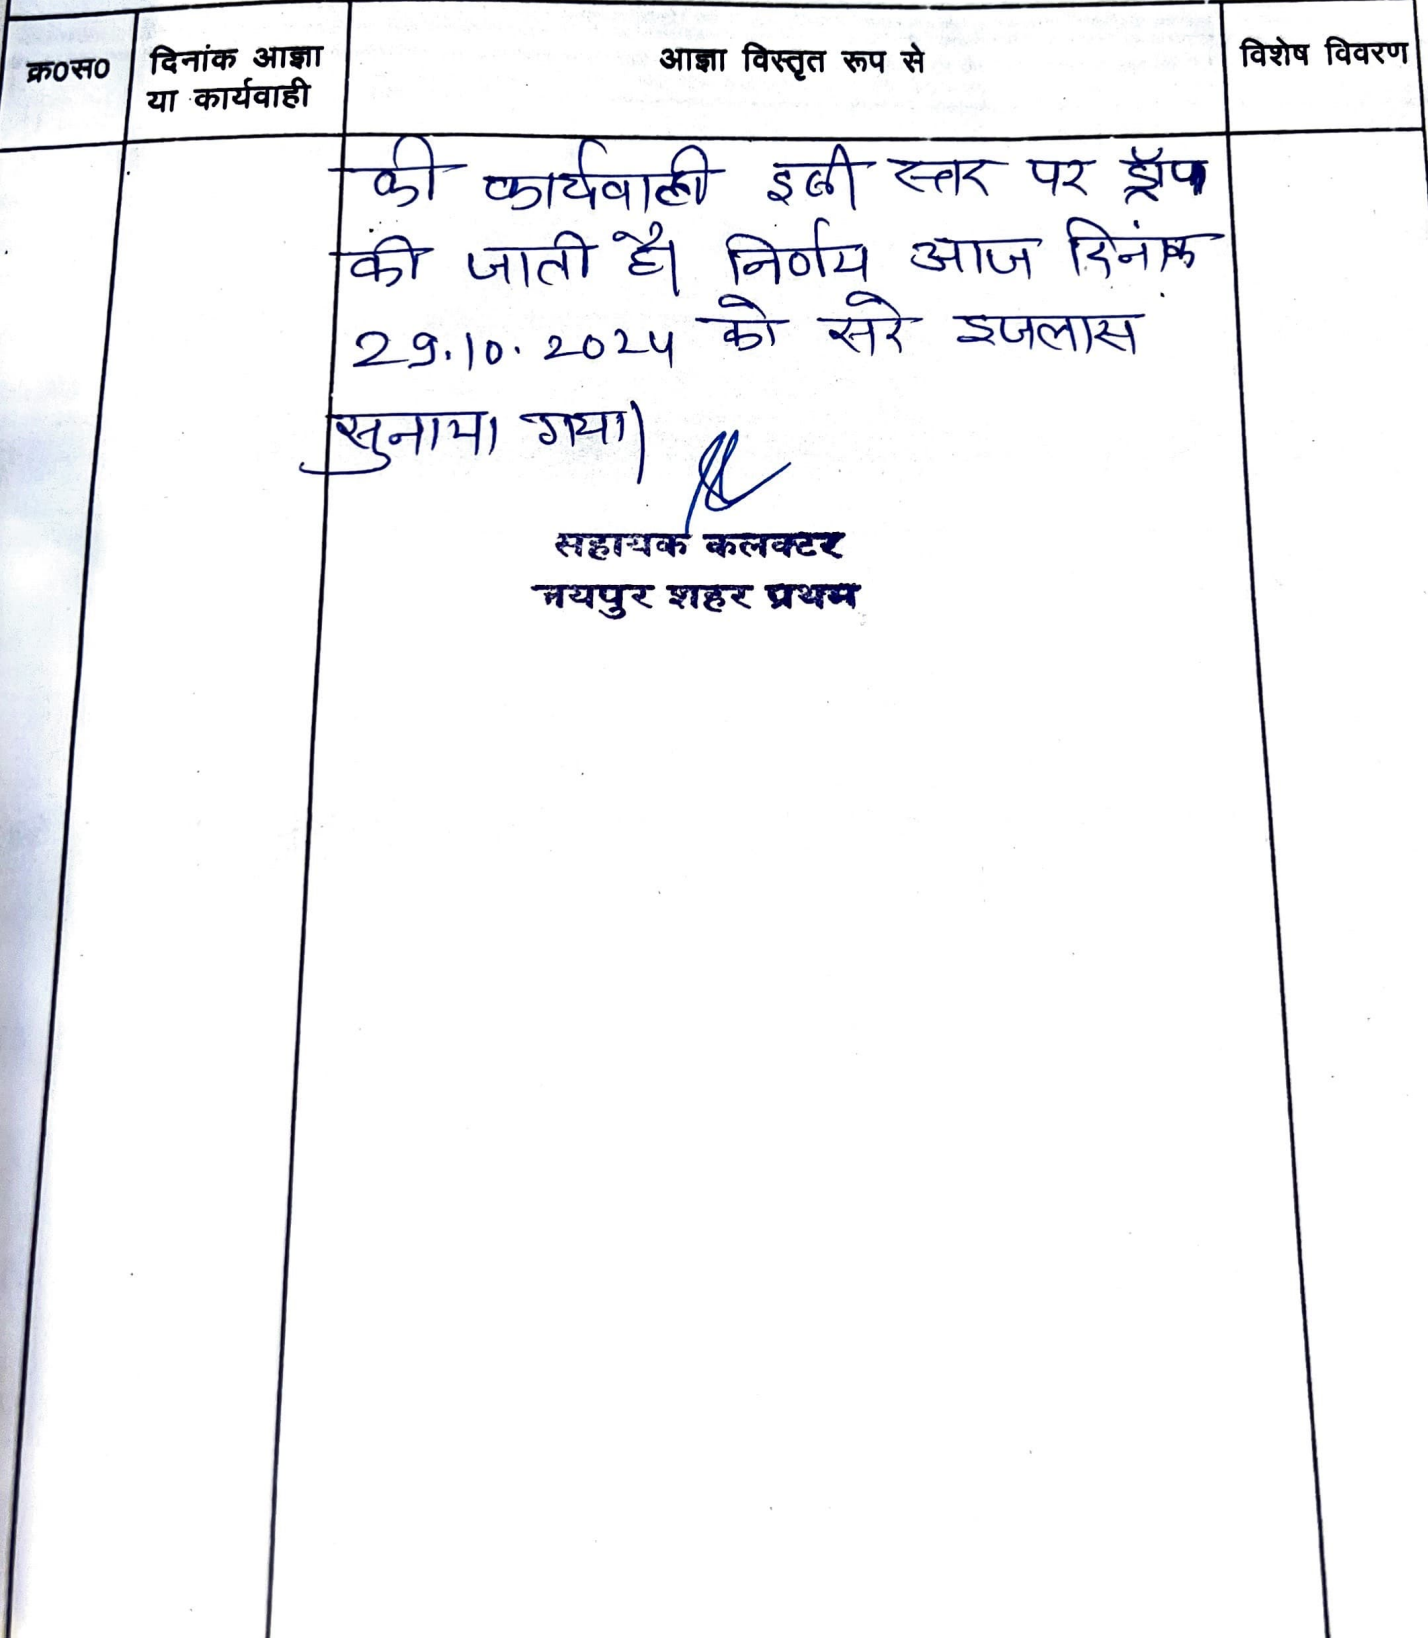 क्र०स० दिनांक आज्ञा आज्ञा विस्तृत रूप से विशेष विवरण
या कार्यवाही
की कार्यवाही इसी स्तर पर ड्रॉप
की जाती है। निर्णय आज दिनांक
29.10.2024 को सरे इजलास
सुनाया गया।
सहायक कलक्टर
जयपुर शहर प्रथम